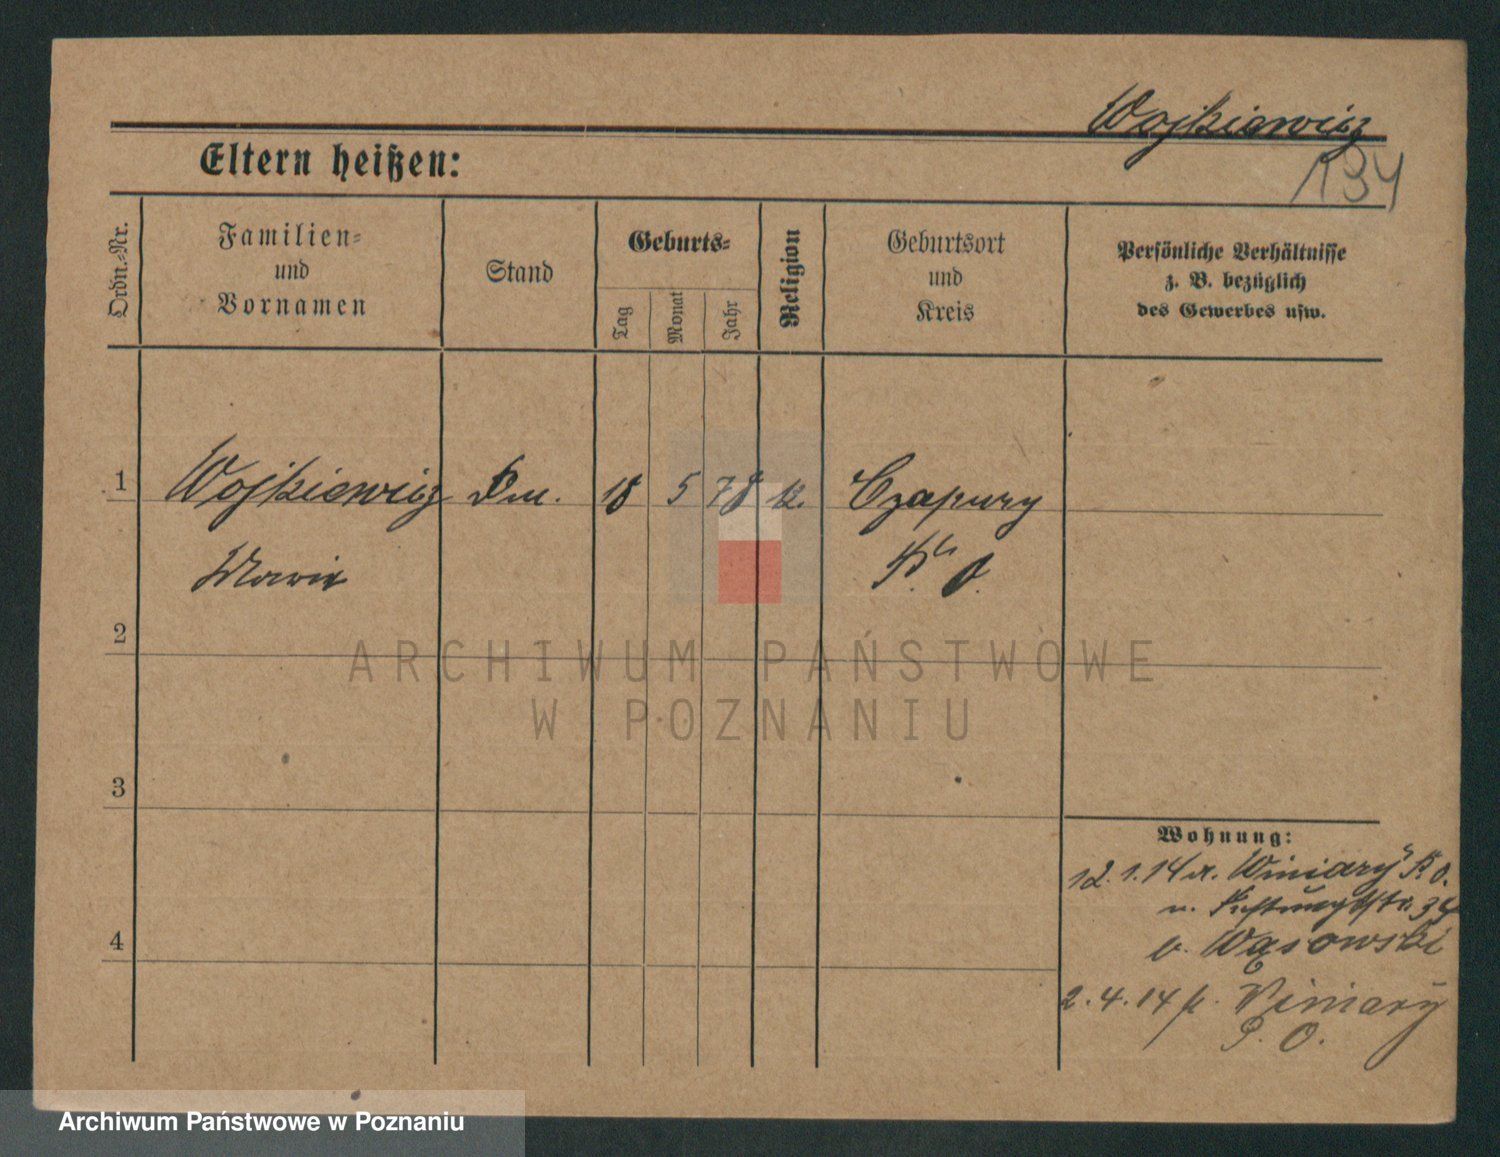 Wojkiewicz
134
Eltern heißen:
Ordn.-Nr.
Familien-
und
Vornamen
Stand
Geburts-
Tag
Monat
Jahr
Religion
Geburtsort
und
Kreis
Persönliche Verhältnisse
z. B. bezüglich
des Gewerbes usw.
1
Wojkiewicz
18
5
78
k.
Czapury
Marie
P. O.
2
ARCHIWUM PAŃSTWOWE
W POZNANIU
3
Wohnung:
12.1.14 Winiary P. O.
34
b. Wąsowski
4
2.4.14 Winiary
P. O.
Archiwum Państwowe w Poznaniu